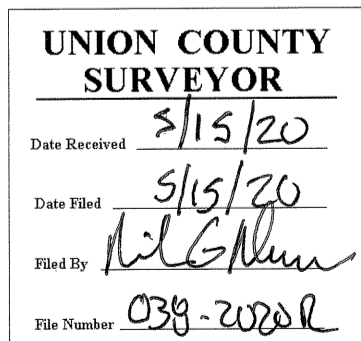 UNION COUNTY
SURVEYOR
Date Received 5/15/20
Date Filed 5/15/20
Filed By
File Number 039-2020R